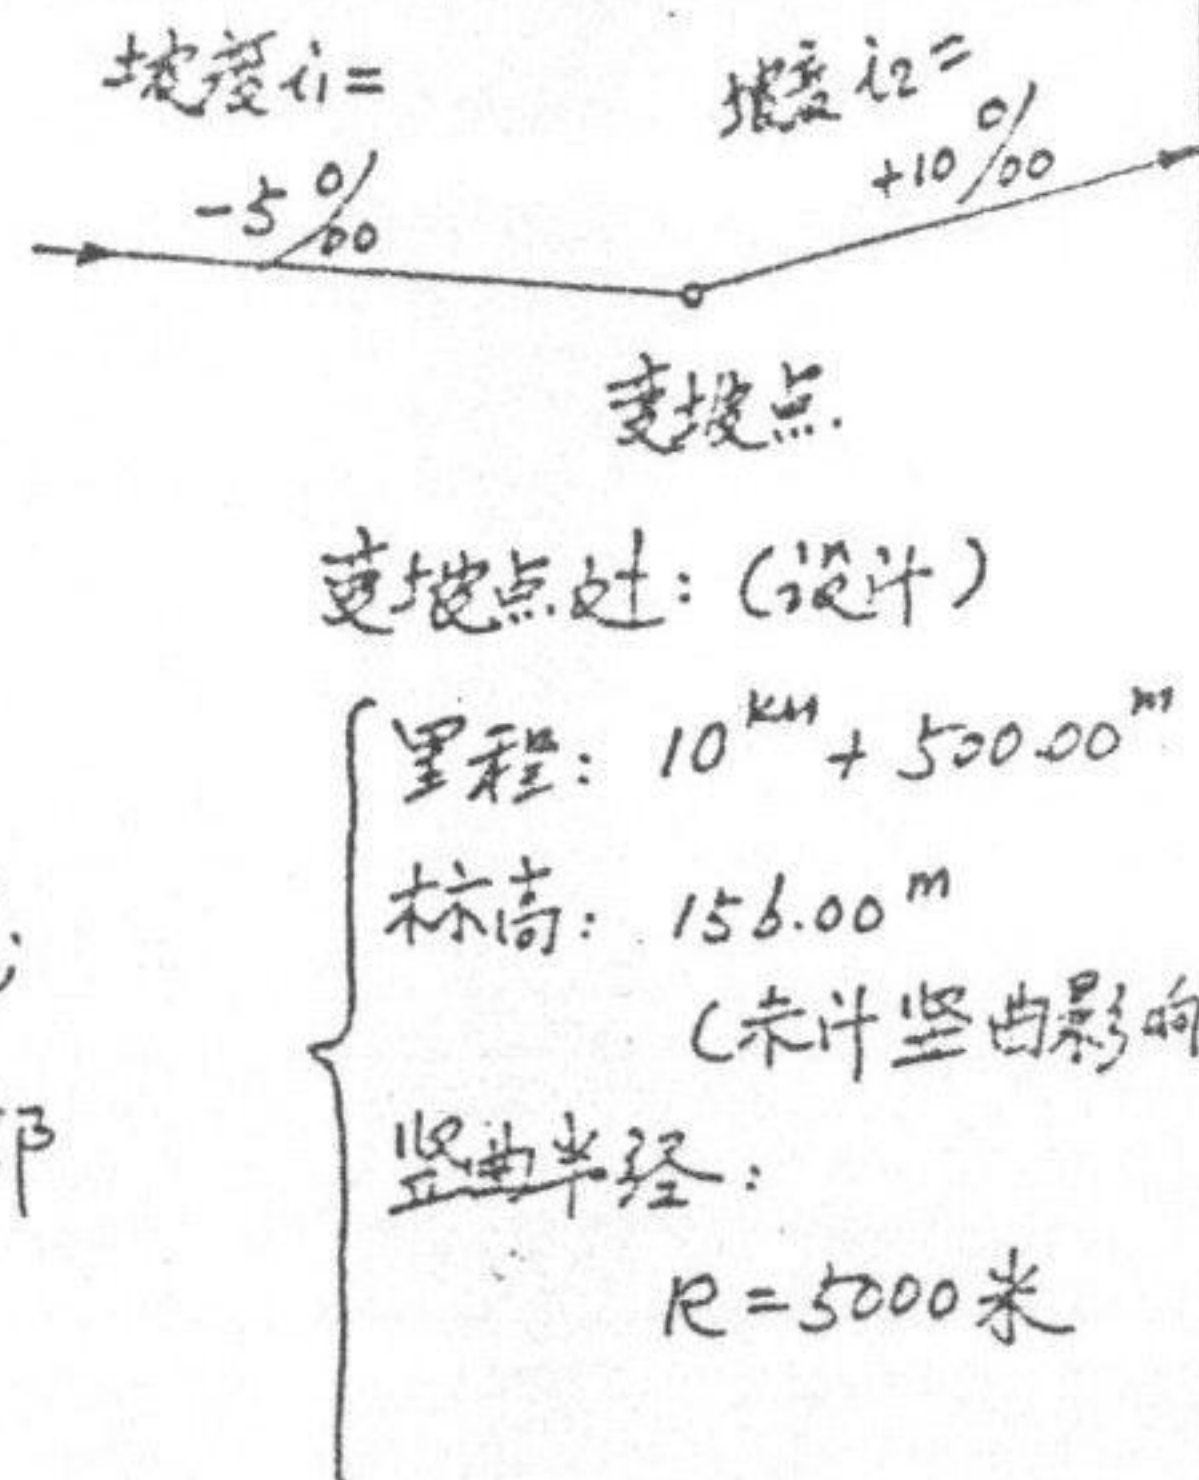 坡度 i1=
-5‰
坡度 i2=
+10‰
变坡点.
变坡点处：(设计)
里程：10km + 500.00m
标高：156.00m
(未计竖曲影响
竖曲半径：
R=5000米